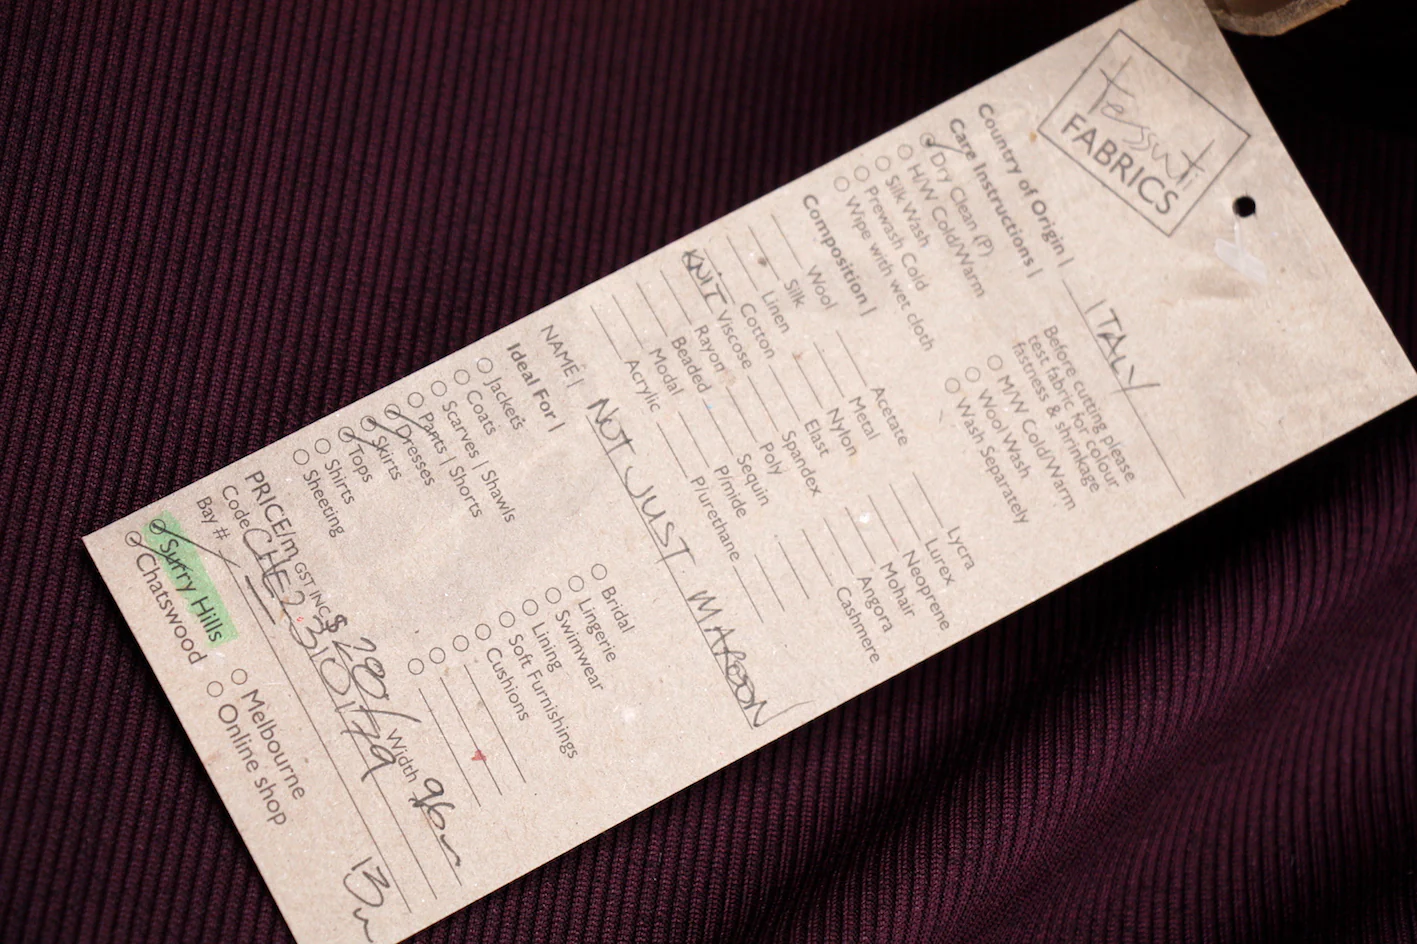 Tessuti
FABRICS
Country of Origin | ITALY
Care Instructions |
Before cutting please
test fabric for colour
fastness & shrinkage
Dry Clean (P)
H/W Cold/Warm
Silk Wash
Prewash Cold
Wipe with wet cloth
M/W Cold/Warm
Wool Wash
Wash Separately
Composition |
Wool
Silk
Linen
Cotton
KNIT Viscose
Rayon
Beaded
Modal
Acrylic
Acetate
Metal
Nylon
Elast
Spandex
Poly
Sequin
P/mide
P/urethane
Lycra
Lurex
Neoprene
Mohair
Angora
Cashmere
NAME | NOT JUST MAROON
Ideal For |
Jackets
Coats
Scarves | Shawls
Pants | Shorts
Dresses
Skirts
Tops
Shirts
Sheeting
Bridal
Lingerie
Swimwear
Lining
Soft Furnishings
Cushions
PRICE/m GST INC $ 280/ Width 96
Code CHE2310179
Bay #
Surry Hills
Chatswood
Melbourne
Online shop